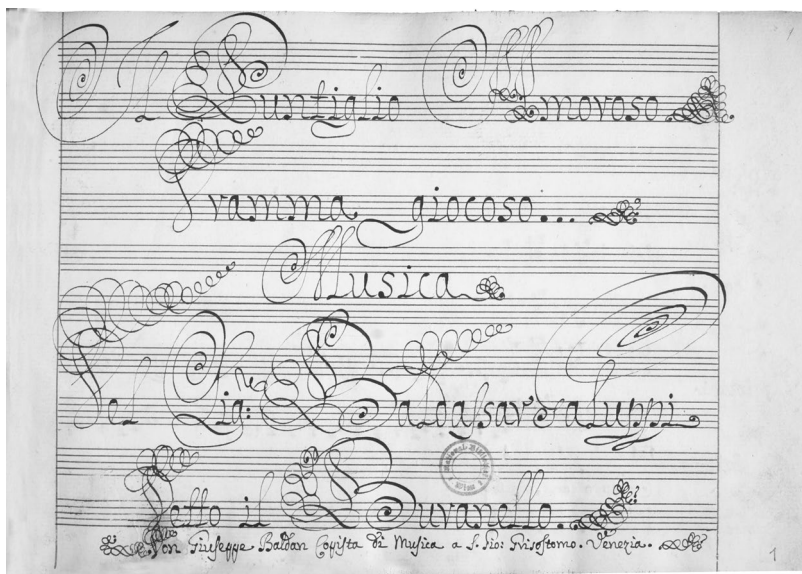 Il Puntiglio Amoroso
Dramma giocoso...
Musica
Del Sig:re Baldassar Galuppi
Detto il Buranello.
Don Giuseppe Baldan Copista di Musica a S. Gio: Grisostomo. Venezia.
1